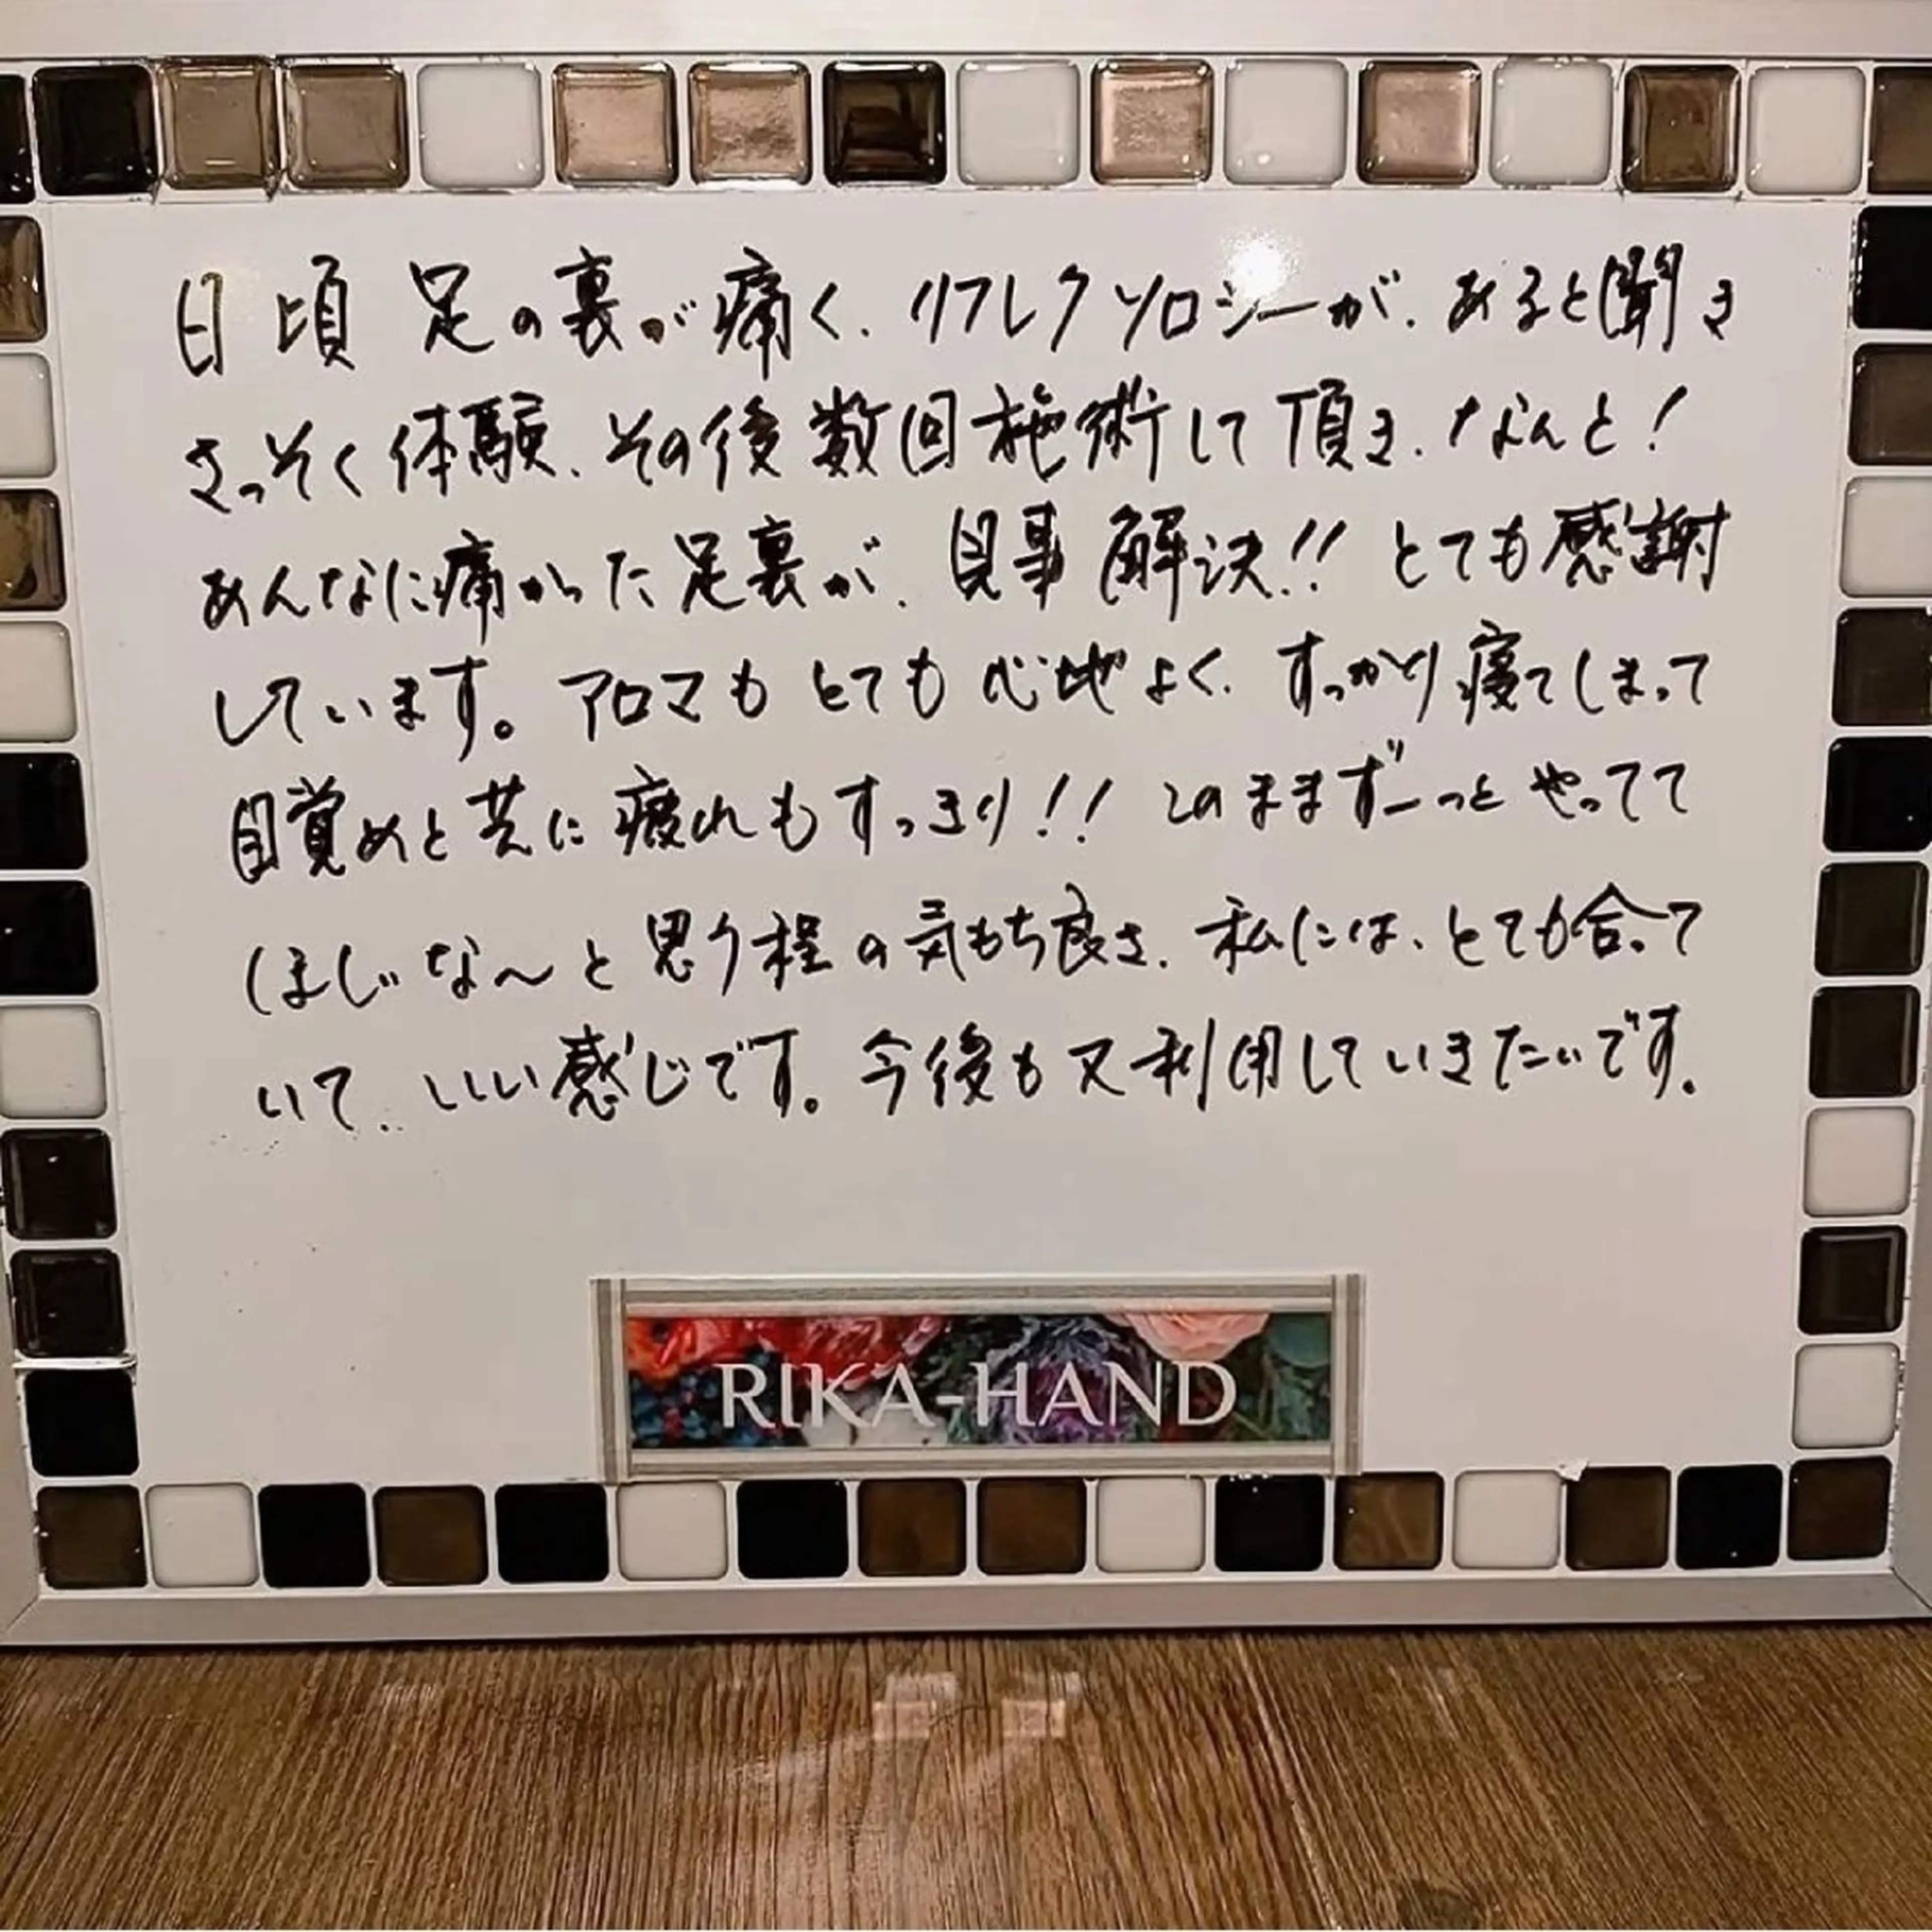 日頃 足の裏が痛く、リフレクソロジーが、あると聞き
さっそく体験、その後数回施術して頂き、なんと!
あんなに痛かった足裏が、見事解決!! とても感謝
しています。アロマもとても心地よく、すっかり寝てしまって
目覚めと共に疲れもすっきり!! このままずーっとやってて
ほしいな〜と思う程の気もち良さ、私には、とても合って
いて、いい感じです。今後も又利用していきたいです。
RIKA-HAND